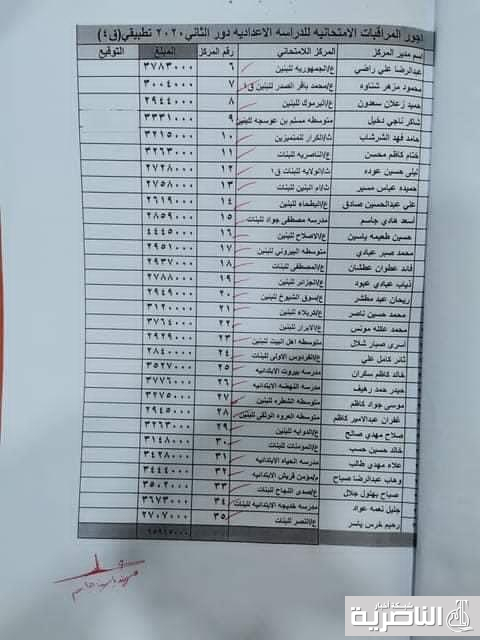 اجور المراقبات الامتحانيه للدراسه الاعداديه دور الثاني ٢٠٢٠ تطبيقي(ق٤)
اسم مدير المركز المركز الامتحاني رقم المركز المبلغ التوقيع
عبدالرضا علي راضي ع/الجمهوريه للبنين ٦ ٣٧٨٣٠٠٠
محمود مزهر شناوه ع/محمد باقر الصدر للبنين ق١ ٧ ٣٠٠٤٠٠٠
حميد زعلان سعدون ع/اليرموك للبنين ٨ ٢٩٤٤٠٠٠
شاكر ناجي دخيل متوسطه مسلم بن عوسجه للبنين ٩ ٣٣٣١٠٠٠
حامد فهد الشرشاب ث/الكرار للمتميزين ١٠ ٣٢١٥٠٠٠
ختام كاظم محسن ع/الناصريه للبنات ١١ ٣٢٦٣٠٠٠
ليلى حسين عوده ث/الولايه للبنات ق١ ١٢ ٢٧٢٨٠٠٠
حميده عباس مسير ث/ام البنين للبنات ١٣ ٢٧٥٨٠٠٠
علي عبدالحسين صادق ع/البطحاء للبنين ١٤ ٢٦١٩٠٠٠
اسعد هادي جاسم مدرسه مصطفى جواد للبنات ١٥ ٢٨٥٩٠٠٠
حسين طعيمه ياسين ع/الاصلاح للبنين ١٦ ٤٤٤٥٠٠٠
محمد صبر عبادي متوسطه البيروني للبنين ١٧ ٢٩٥١٠٠٠
قائد عطوان عطشان ع/المصطفى للبنات ١٨ ٢٩٣٧٠٠٠
ذياب عبادي عبود ع/الجزائر للبنين ١٩ ٢٧٨٨٠٠٠
ريحان عبد مطشر ع/سوق الشيوخ للبنين ٢٠ ٢٩٤٩٠٠٠
محمد حسين ناصر ع/كربلاء للبنين ٢١ ٣١٢٠٠٠٠
محمد عكله مونس ع/الابرار للبنين ٢٢ ٣٧٦٤٠٠٠
اسرى صبار شلال متوسطه اهل البيت للبنين ٢٣ ٢٩٢٩٠٠٠
ثائر كامل علي ع/الفردوس الاولى للبنات ٢٤ ٢٨٤٠٠٠٠
خالد كاظم سكران مدرسه بيروت الابتدائيه ٢٥ ٣٥٢٧٠٠٠
حيدر حمد رهيف مدرسه النهضه الابتدائيه ٢٦ ٣٧٧٦٠٠٠
موسى جواد كاظم متوسطه الشطره للبنين ٢٧ ٣٢٧٥٠٠٠
غفران عبدالامير كاظم متوسطه العروه الوثقى للبنين ٢٨ ٢٩٤٥٠٠٠
صلاح مهدي صالح ع/الدوايه للبنين ٢٩ ٣٢٦٣٠٠٠
خالد حسين حسب ع/المومنات للبنات ٣٠ ٣١٤٨٠٠٠
علاء مهدي طالب مدرسه الحياه الابتدائيه ٣١ ٣٤٢٨٠٠٠
وهاب عبدالرضا صباح ع/مومن قريش الابتدائيه ٣٢ ٣٤٤٤٠٠٠
صباح بهلول جلال ع/صدى النجاح للبنات ٣٣ ٣٥٠٢٠٠٠
جليل نعمه عواد مدرسه خديجه الابتدائيه للبنات ٣٤ ٣٦٧٣٠٠٠
رحيم خرس ياسر ع/النصر للبنات ٣٥ ٢٧٠٧٠٠٠
شبكة اخبار
الناصرية